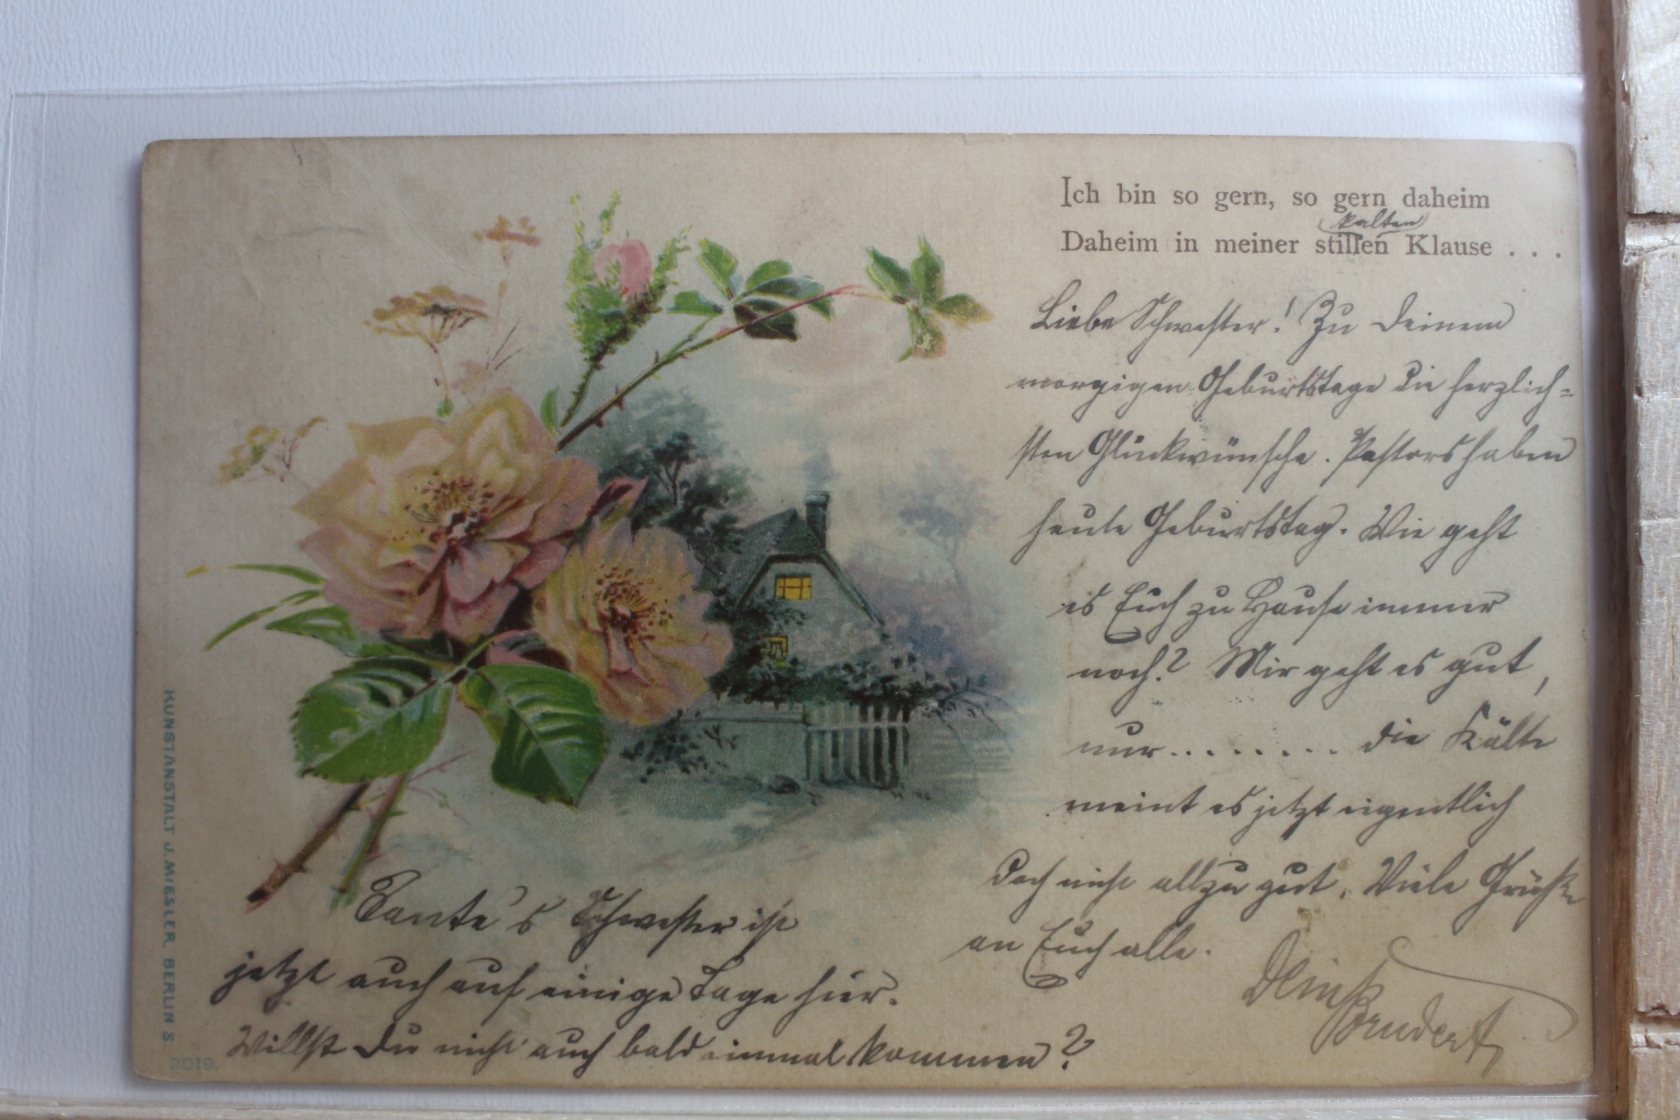 Ich bin so gern, so gern daheim
kalten
Daheim in meiner stillen Klause . . .
Liebe Schwester! Zu Deinem
morgigen Geburtstage die herzlich-
sten Glückwünsche. Pastors haben
heute Geburtstag. Wie geht
es Euch zu Hause immer
noch? Mir geht es gut,
nur......... die Kälte
meint es jetzt eigentlich
doch nicht allzu gut. Viele Grüße
an Euch alle.
Dein
Bruder
Tante's Schwester ist
jetzt auch auf einige Tage hier.
Willst Du nicht auch bald einmal kommen?
KUNSTANSTALT J. MIESLER, BERLIN S.
2019.